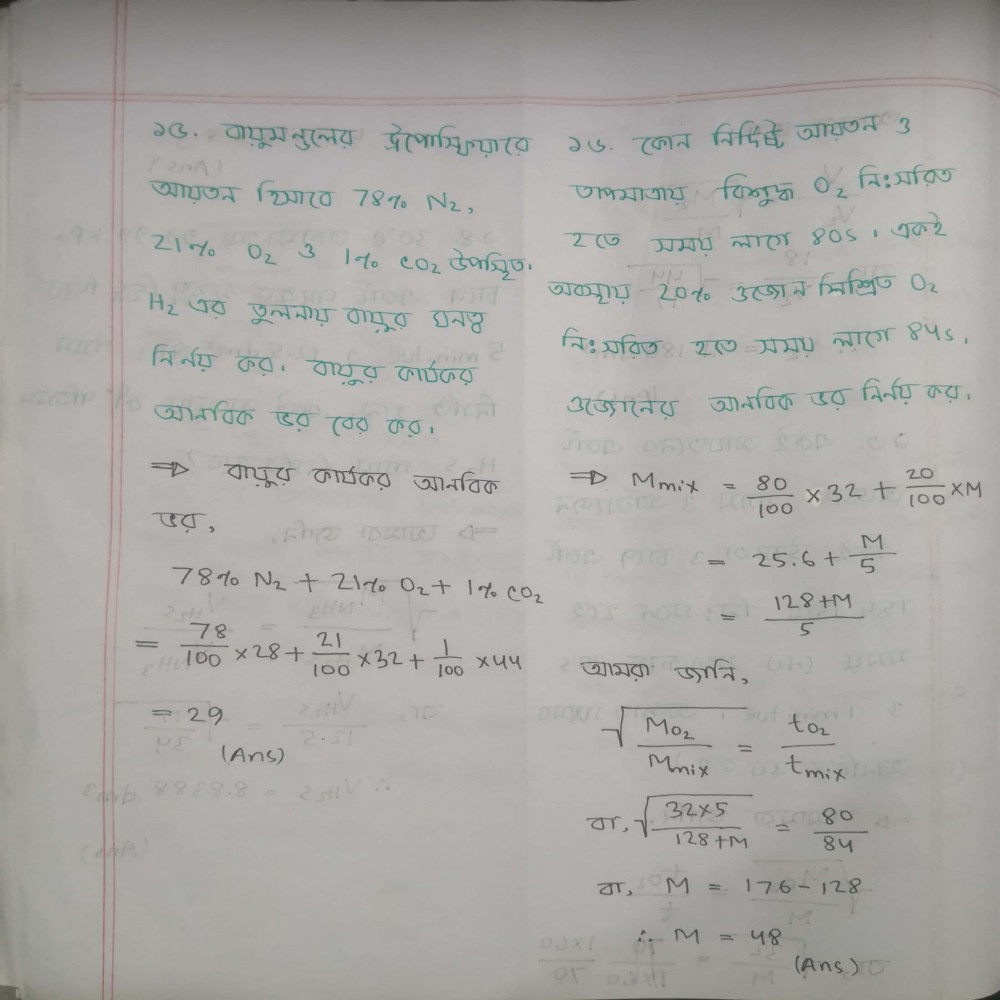 ১৫. বায়ুমণ্ডলের ট্রপোস্ফিয়ারে
আয়তন হিসাবে 78% N₂,
21% O₂ ও 1% CO₂ উপস্থিত.
H₂ এর তুলনায় বায়ুর ঘনত্ব
নির্ণয় কর. বায়ুর কার্যকর
আনবিক ভর বের কর.
⇒ বায়ুর কার্যকর আনবিক
ভর,
78% N₂ + 21% O₂ + 1% CO₂
= 78/100 × 28 + 21/100 × 32 + 1/100 × 44
= 29
(Ans)
১৬. কোন নির্দিষ্ট আয়তন ও
তাপমাত্রায় বিশুদ্ধ O₂ নিঃসরিত
হতে সময় লাগে 80s. একই
অবস্থায় 20% ওজোন মিশ্রিত O₂
নিঃসরিত হতে সময় লাগে 84s.
ওজোনের আনবিক ভর নির্ণয় কর.
⇒ Mmix = 80/100 × 32 + 20/100 × M
= 25.6 + M/5
= 128+M/5
আমরা জানি,
√(MO₂/Mmix) = tO₂/tmix
বা, √(32×5/128+M) = 80/84
বা, M = 176 - 128
∴ M = 48
(Ans)